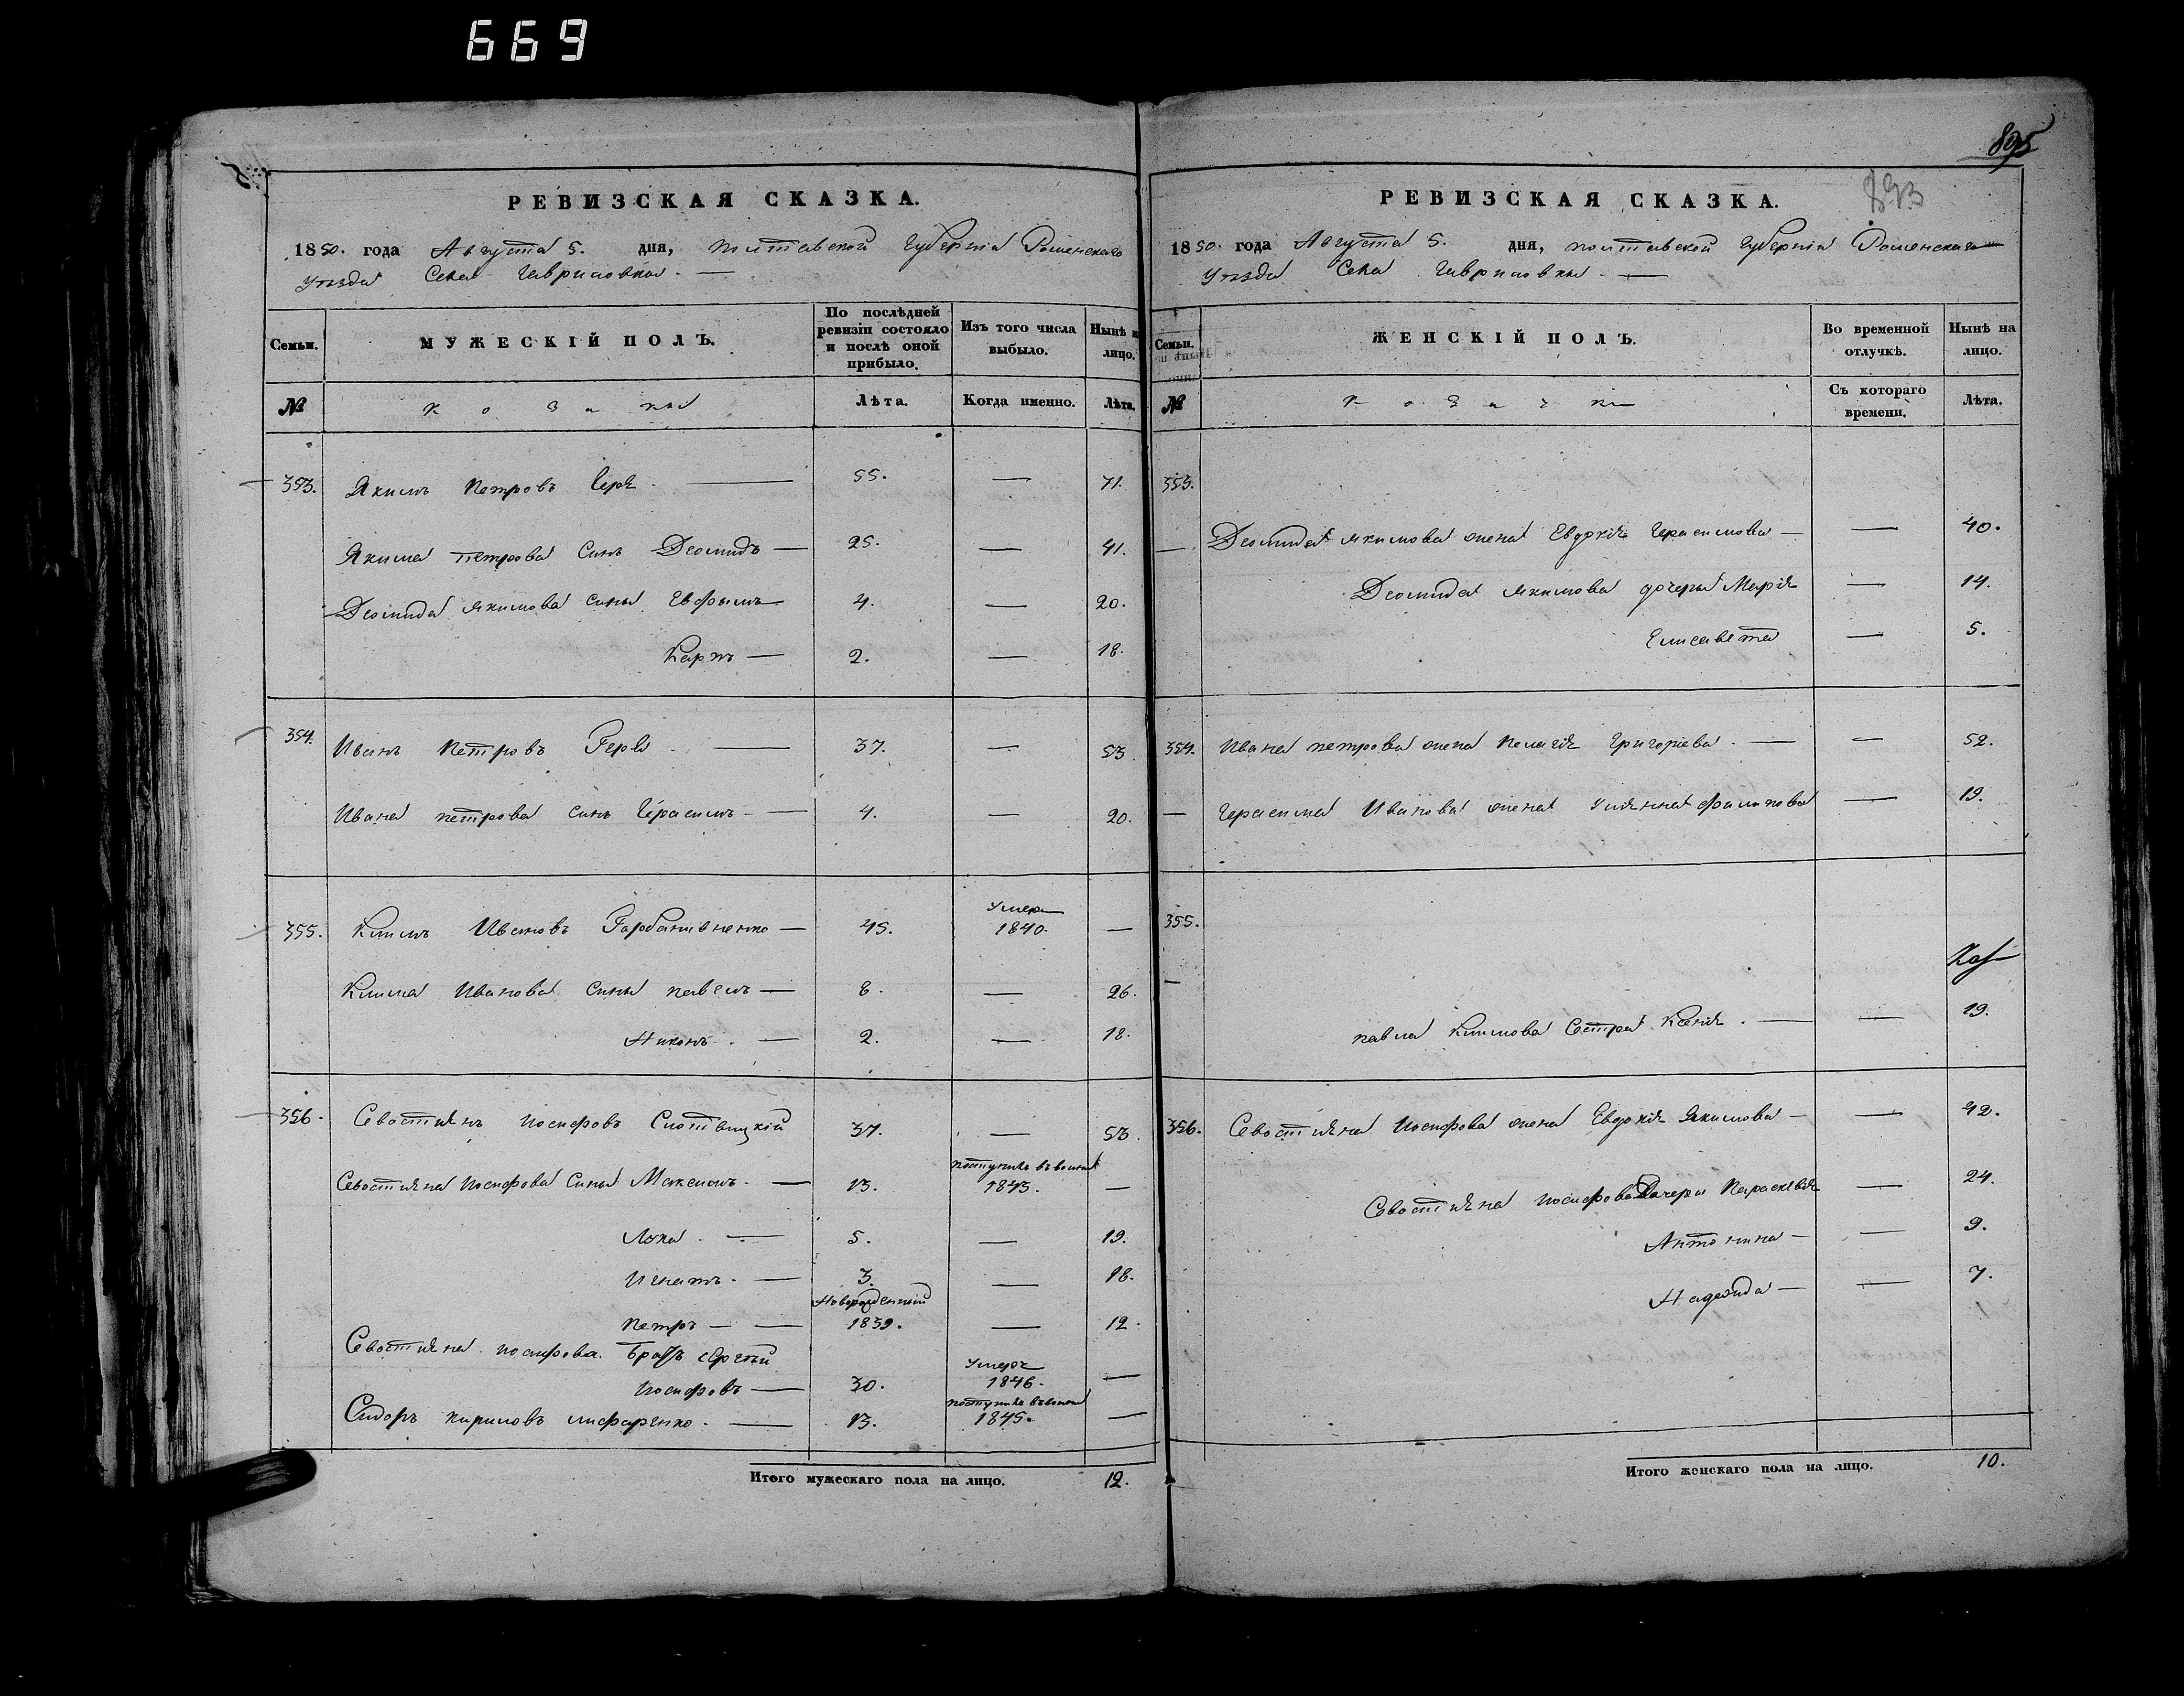 669
895
893
РЕВИЗСКАЯ СКАЗКА.
1850. года Августа 5. дня, Полтавской Губерніи Роменскаго
Уѣзда Села Гавриловки. —
Семьи. МУЖЕСКІЙ ПОЛЪ. По послѣдней ревизіи состояло и послѣ оной прибыло. Изъ того числа выбыло. Нынѣ на лицо.
№ Козаки Лѣта. Когда именно. Лѣта.
353. Якимъ Петровъ — 55. — 71.
Якима Петрова Сынъ Деомидъ — 25. — 41.
Деомида Якимова Сыны Евфимъ 4. — 20.
Карпъ — 2. — 18.
354. Иванъ Петровъ — 37. — 53
Ивана Петрова Сынъ Герасимъ — 4. — 20.
355. Климъ Ивановъ — 45. Умеръ 1840. —
Клима Иванова Сыны Павелъ — 8. — 26.
Никонъ — 2. — 18.
356. Севостіянъ Иосифовъ 37. — 53.
Севостіяна Иосифова Сыны Максимъ — 13. поступилъ въ 1843. —
Лука — 5. — 19.
Игнатъ — 3. — 18.
Петръ — Новорожденный 1839. — 12.
Севостіяна Иосифова Братъ Сергѣй
Иосифовъ — 30. Умеръ 1846. —
Сидоръ Кириловъ — 13. поступилъ въ 1845. —
Итого мужескаго пола на лицо. 12.
РЕВИЗСКАЯ СКАЗКА.
1850. года Августа 5. дня, Полтавской Губерніи Роменскаго
Уѣзда Села Гавриловки. —
Семьи. ЖЕНСКІЙ ПОЛЪ. Во временной отлучкѣ. Нынѣ на лицо.
№ Козачки Съ котораго времени. Лѣта.
353.
— Деомида Якимова жена Евдокія Герасимова — — 40.
Деомида Якимова дочери Марія — 14.
Елисавета — 5.
354. Ивана Петрова жена Пелагія Григоріева. — — 52.
— Герасима Иванова жена Уліянна Филипова — 19.
355.
—
Павла Климова Сестра Ксенія. — — 19.
356. Севостіяна Иосифова жена Евдокія Якимова — — 42.
Севостіяна Иосифова Дочери Параскевія — 24.
Антонина — — 9.
Надежда — — 7.
Итого женскаго пола на лицо. 10.